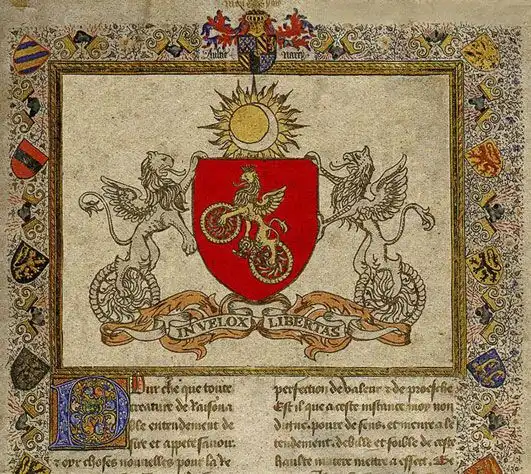 IN VELOX LIBERTAS
Pour che que toute
creature de Raisona
ble entendement de
sire et appete savoir
⁊ oyr choses nouvelles pour la
perfection de valeur ⁊ de proesche
Est il que a ceste instance moy non
digne, povre de sens, et menre a
tendement, debille et foible de ceste
haulte matere mettre a effect.